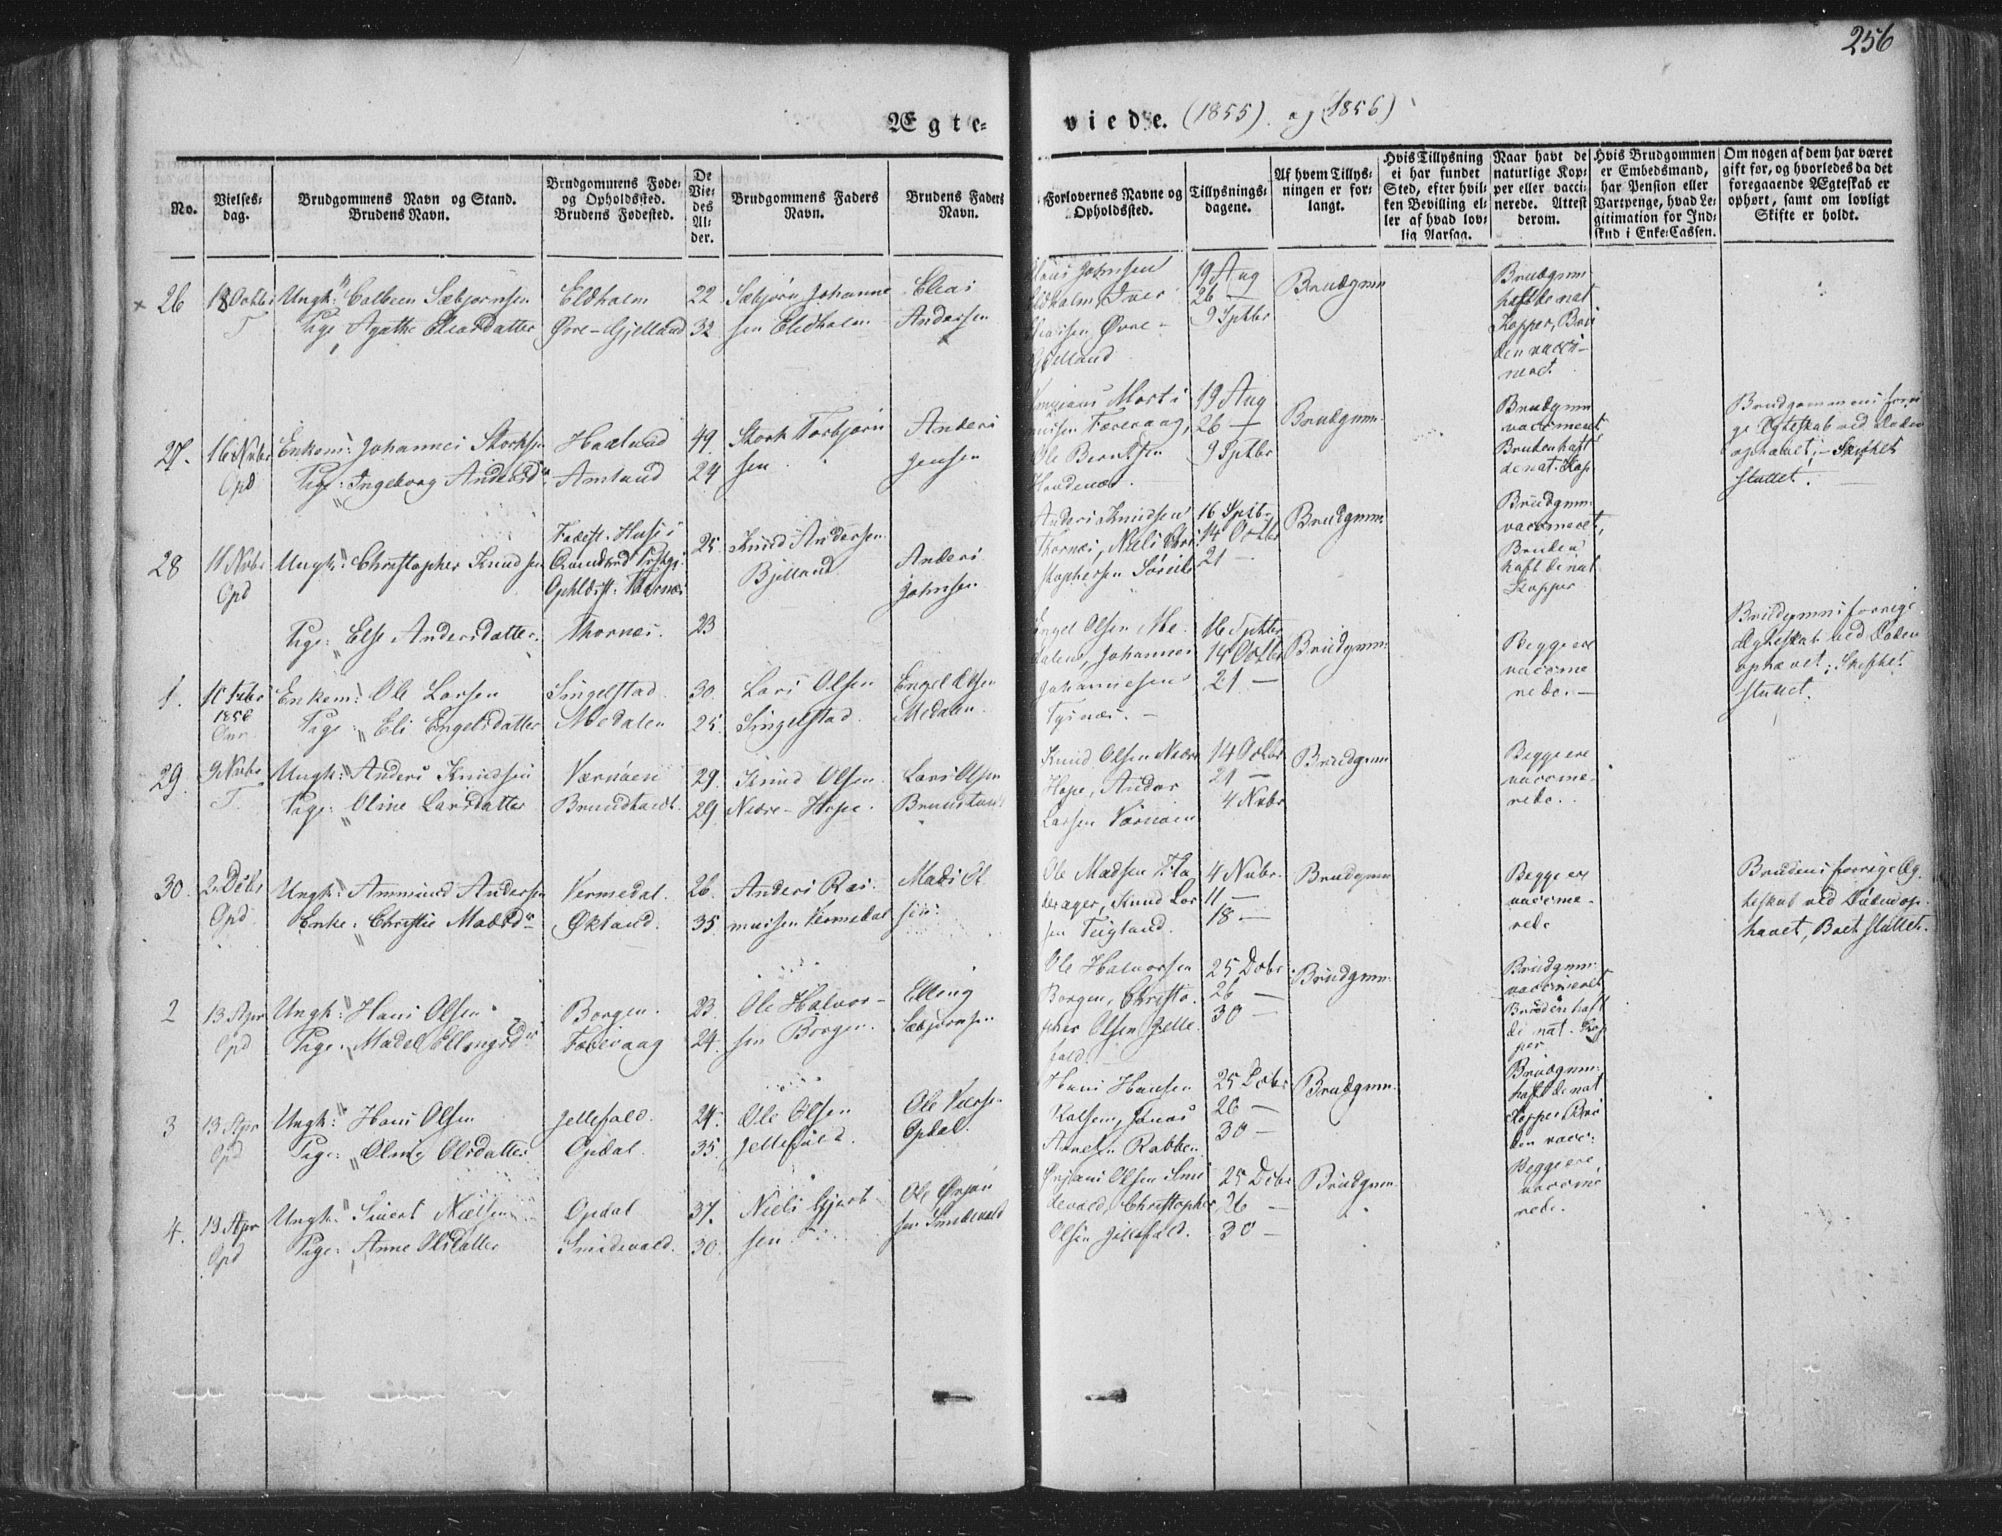 256
Ægte-
viede. (1855). og (1856)
No.
Vielses-
dag.
Brudgommens Navn og Stand.
Brudens Navn.
Brudgommens Føde-
og Opholdssted.
Brudens Fødested.
De
Vie-
des
Al-
der.
Brudgommens Faders
Navn.
Brudens Faders
Navn.
Forlovernes Navne og
Opholdssted.
Tillysnings-
dagene.
Af hvem Tillys-
ningen er for-
langt.
Hvis Tillysning
ei har fundet
Sted, efter hvil-
ken Bevilling el-
ler af hvad lov-
lig Aarsag.
Naar havt de
naturlige Kop-
per eller vacci-
nerede. Attest
derom.
Hvis Brudgommen
er Embedsmand,
har Pension eller
Vartpenge, hvad Le-
gitimation for Ind-
skud i Enke-Cassen.
Om nogen af dem har været
gift før, og hvorledes da det
foregaaende Ægteskab er
ophørt, samt om lovligt
Skifte er holdt.
26
18 Octbr
T
Ungk: Colbeen Sæbjørnsen
Pige, Agathe Eleasdatter
Eldholm
Øvre-Gjelland
22
32
Sæbjørn Johanne
sen Eldholm
Eleas
Andersen
Johnsen
Eldholm, Iver
Øvre-
Gjelland
19 Aug
26 —
9 Sptbr
Brudgmn
Brudgmn
haft de nat.
Kopper, Bru
den vacci-
neret.
27.
16 Nvbr
Opd
Enkem: Johannes Storksen
Pige: Ingeborg Andersdr
Haaland
Amland
49.
24
Stork Torbjørn
sen
Anders
Jensen
Morti
nusen Færeraag,
Ole Berntsen
Hondenæs.
19 Aug
26 —
9 Sptbr
Brudgmn
Brudgmn
vaccineret
Bruden haft
de nat. Kop
Brudgommens forri
ge Ægteskab ved Døden
ophævet; Skiftet
sluttet. —
28
11 Nvbr
Opd
Ungk: Christopher Knudsen
Pige: Else Andersdatter.
Fødest. Huse i
Qvindherd Prstgj:
Ophldst. Thornæs
Thornæs.
25
23
Knud Andersen
Bjelland
Anders
Johnsen
Anders Knudsen
Thornæs, Niels Chri
stophersen Søreide
16 Sptbr
14 Octbr
21 —
Brudgmn:
Brudgmn:
vaccineret,
Bruden
haft de nat.
Kopper
1.
10 Febr
1856
Enkem: Ole Larsen
Pige: Eli Engelsdatter
Singelstad
Medalen
30.
25.
Lars Olsen
Singelstad.
Engel Olsen
Medalen.
Engel Olsen Me-
dalen, Johannes
Johannesen
Tysnæs. —
16 Sptbr
14 Octbr
21 —
Brudgmn:
Begge ere
vaccine
rede. —
Brudgmns forrige
Ægteskab ved Døden
ophævet; Skiftet
sluttet.
29.
9 Nvbr
T.
Ungk: Anders Knudsen
Pige: Oline Larsdatter
Værnøen
Brundtandt.
29.
29.
Knud Olsen
Nedre-Hope.
Lars Olsen
Brundtand
Knud Olsen Nedre
Hope, Anders
Larsen Værnøen
14 Octbr
21 —
4 Nvbr
Brudgmn
Begge ere
vaccine-
rede.
30.
2 Dcbr
Opd
Ungk: Ammund Andersen
Enke: Christie Madsdr
Vermedal.
Økland.
26.
35.
Anders Ras-
mussen Vermedal
Mads Ol
sen
Ole Madsen Fla
deager, Knud Lar
sen Tugland.
4 Nvbr.
11 —
18 —
Brudgmn
Begge ere
vaccine-
rede
Brudens forrige Æg-
teskab ved Døden op-
hævet, Boet sluttet.
2
13 Apr
Opd
Ungk: Hans Olsen
Pige: Madel Ellingsdr
Borgen.
Færeraag
23.
24.
Ole Halvor-
sen Borgen.
Elling
Sæbjørnsen
Ole Halvorsen
Borgen, Christo-
pher Olsen Jelle
fald.
25 Dcbr
26 —
30 —
Brudgmn
Brudgmn:
vaccineret
Bruden haft
de nat. Kop
per
3
13 Apr
Opd
Ungk: Hans Olsen
Pige: Oline Olsdatter
Jellefald.
Opdal.
24.
35.
Ole Olsen
Jellefald.
Ole Larsen
Opdal.
Hans Hansen
Kalsen, Jonas
Annesen Rabben
25 Dcbr
26 —
30 —
Brudgmn:
Brudgmn:
haft de nat
Kopper Bru
den vacc:
4.
13 Apr
Opd
Ungk: Sivert Nielsen
Pige: Anne Olsdatter
Opdal
Smidevald.
37.
30.
Niels Gjert
sen
Ole Ørjan
sen Smidevald
Ørjans Olsen Smi
devald, Christopher
Olsen Jellefald.
25 Dcbr
26 —
30 —
Brudgmn
Begge ere
vaccine
rede.